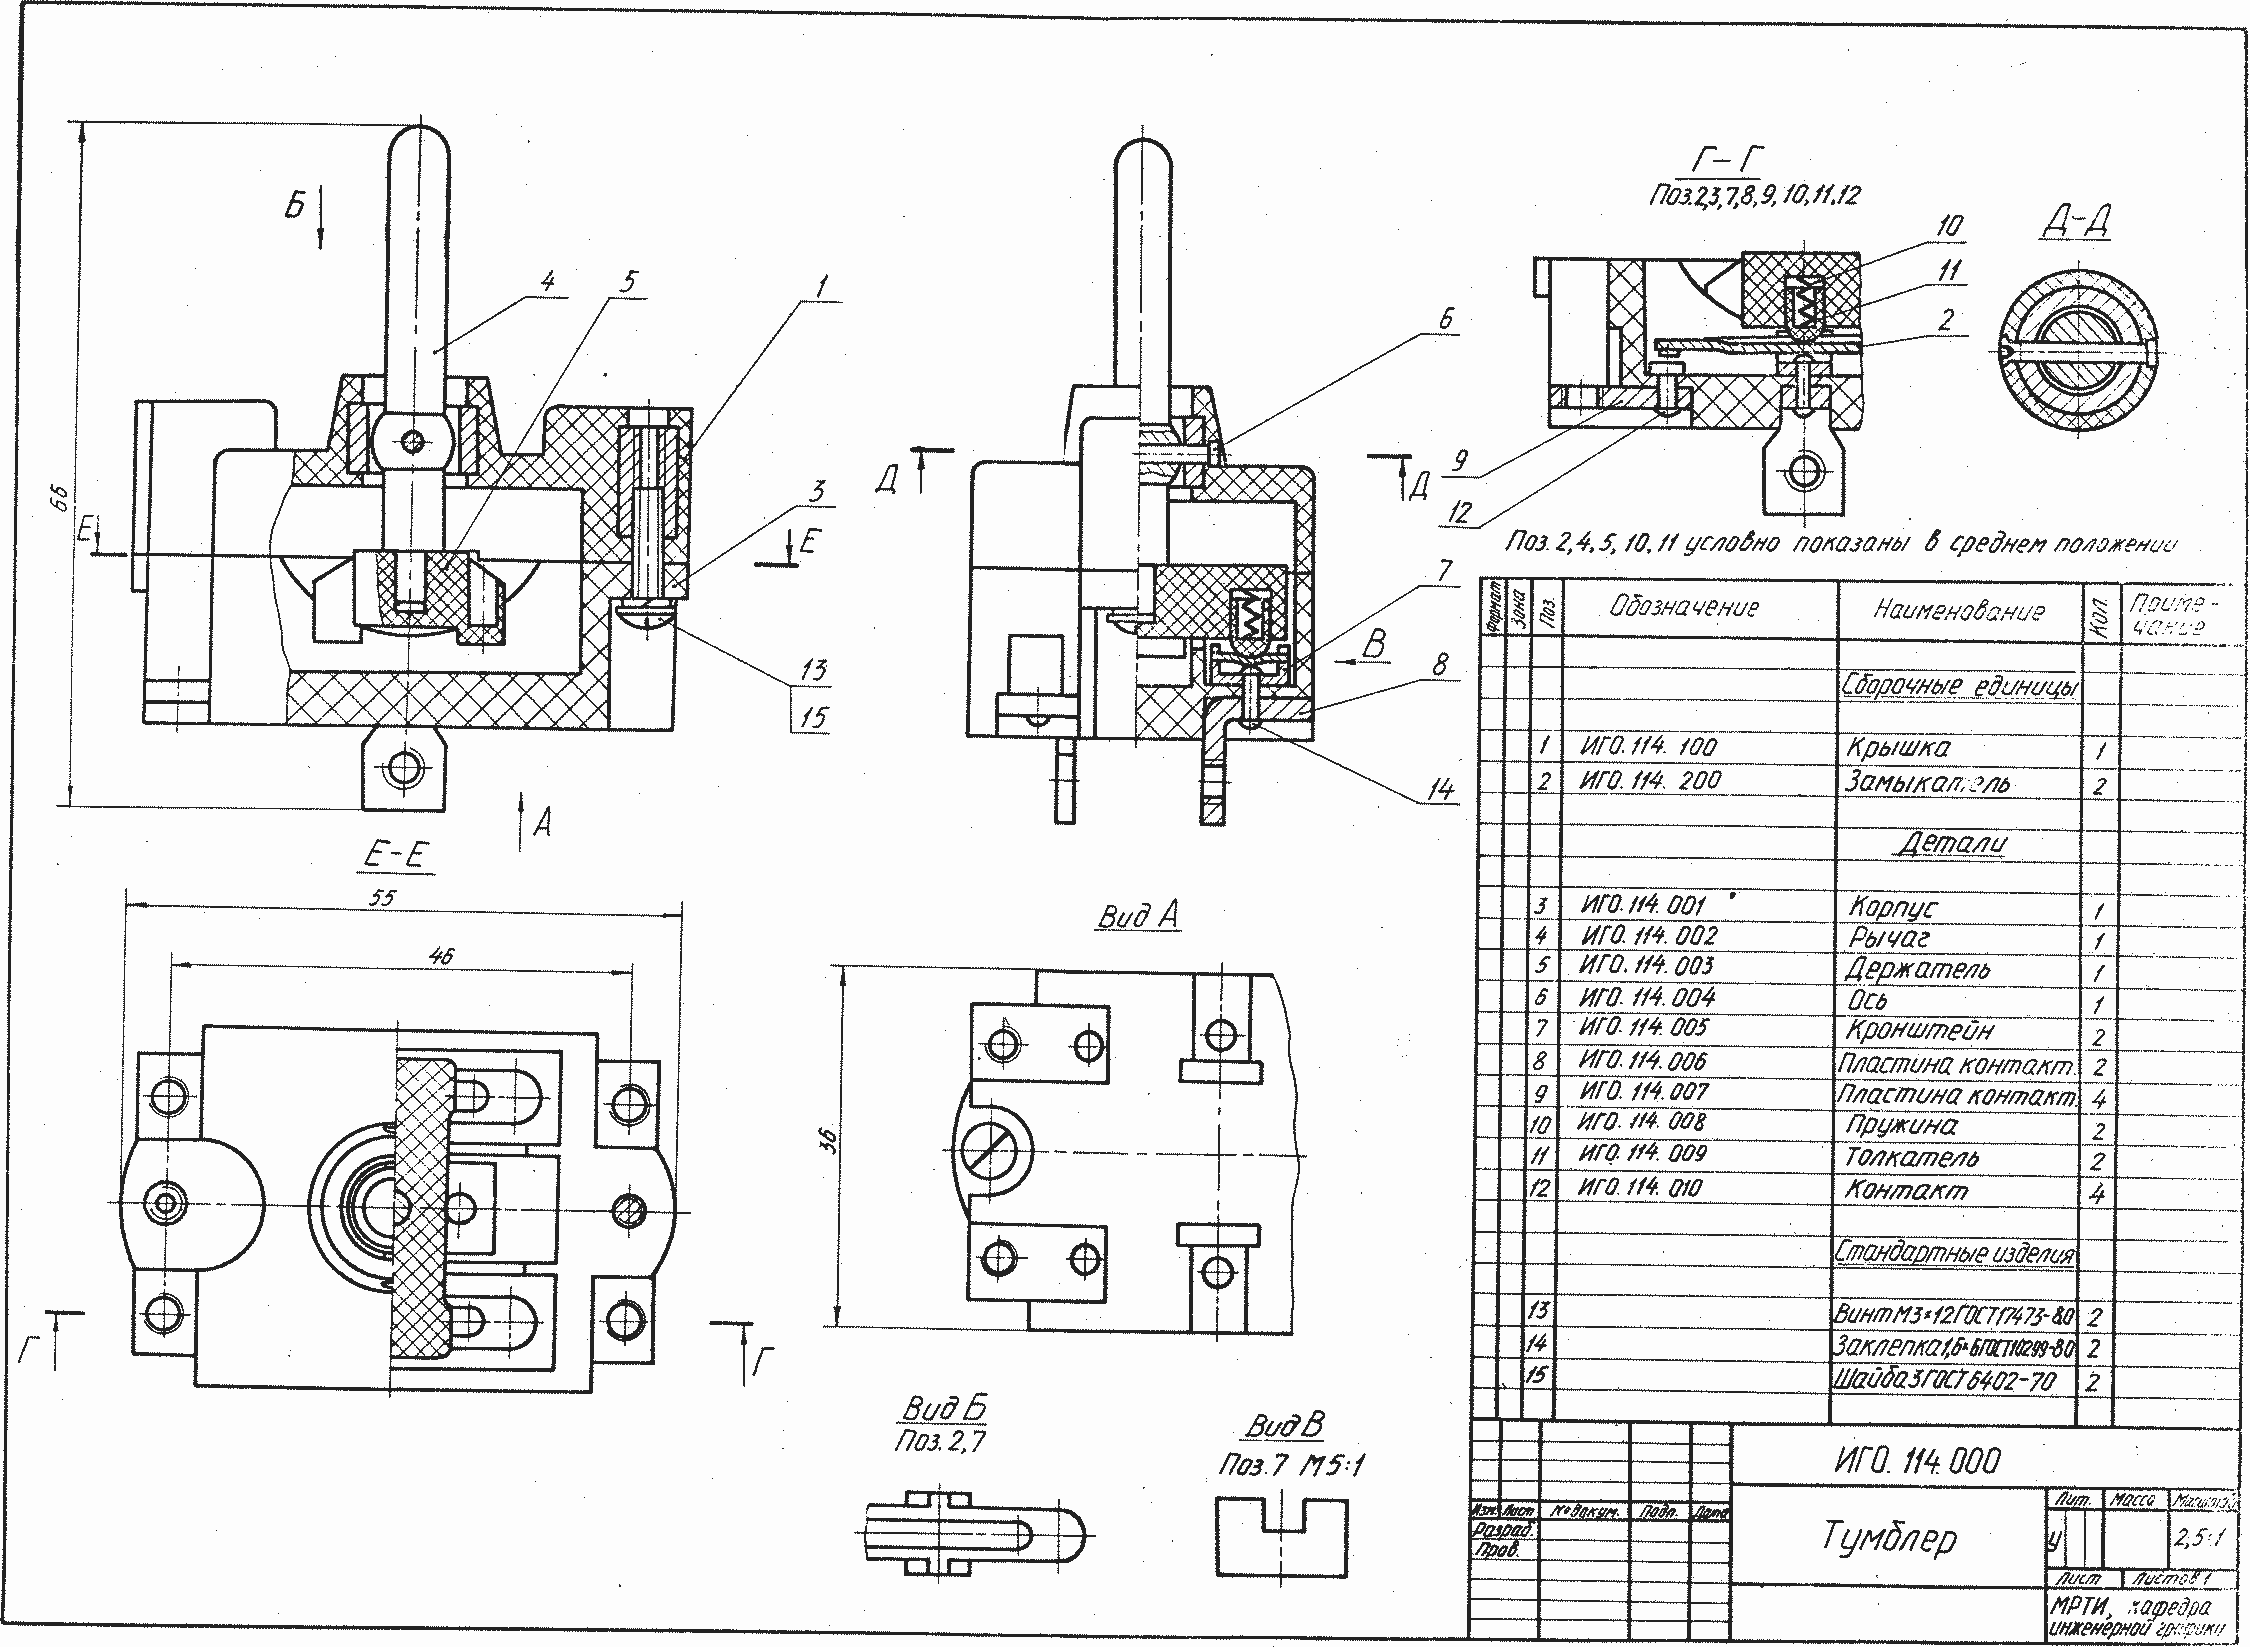 Г-Г
Поз.2,3,7,8,9,10,11,12
Д-Д
10
11
2
9
12
Поз. 2,4,5,10,11 условно показаны в среднем положении
Б
4
5
1
3
66
Е
Е
13
15
А
6
Д
Д
7
В
8
14
Е-Е
55
46
Г
Г
Вид А
36
Вид Б
Поз. 2,7
Вид В
Поз.7 М5:1
Формат Зона Поз. Обозначение Наименование Кол. Приме-
чание
Сборочные единицы
1 ИГО.114.100 Крышка 1
2 ИГО.114.200 Замыкатель 2
Детали
3 ИГО.114.001 Корпус 1
4 ИГО.114.002 Рычаг 1
5 ИГО.114.003 Держатель 1
6 ИГО.114.004 Ось 1
7 ИГО.114.005 Кронштейн 2
8 ИГО.114.006 Пластина контакт. 2
9 ИГО.114.007 Пластина контакт. 4
10 ИГО.114.008 Пружина 2
11 ИГО.114.009 Толкатель 2
12 ИГО.114.010 Контакт 4
Стандартные изделия
13 Винт М3×12 ГОСТ17473-80 2
14 Заклепка 1,6×6 ГОСТ10299-80 2
15 Шайба 3 ГОСТ 6402-70 2
ИГО.114.000
Изм. Лист № докум. Подп. Дата
Разраб.
Пров.
Тумблер
Лит. Масса Масштаб
У 2,5:1
Лист Листов 1
МРТИ, кафедра
инженерной графики